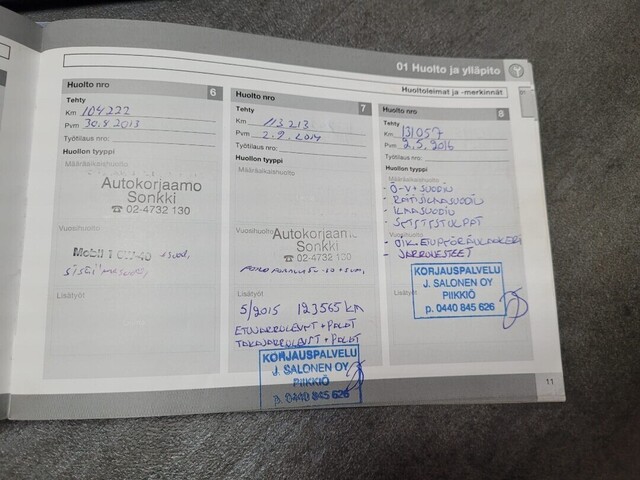 01 Huolto ja ylläpito
Huoltoleimat ja -merkinnät
Huolto nro 6
Tehty
Km 104222
Pvm 30.8.2013
Työtilaus nro:
Huollon tyyppi
Määräaikaishuolto
Autokorjaamo
Sonkki
☎ 02-4732 130
Vuosihuolto
Mobil 1
Lisätyöt
Huolto nro 7
Tehty
Km 113213
Pvm 2.9.2014
Työtilaus nro:
Huollon tyyppi
Määräaikaishuolto
Vuosihuolto
Autokorjaamo
Sonkki
☎ 02-4732 130
Lisätyöt
5/2015 123565 KM
ETUJARRULEVYT + PALAT
TAKAJARRULEVYT + PALAT
KORJAUSPALVELU
J. SALONEN OY
PIIKKIÖ
p. 0440 845 626
Huolto nro 8
Tehty
Km 131057
Pvm 2.5.2016
Työtilaus nro:
Huollon tyyppi
Määräaikaishuolto
- Ö-V + SUODIN
- RAITISILMASUODIN
- ILMASUODIN
- SYTYTYSTULPAT
Vuosihuolto
- OIK. ETUPYÖRÄNLAAKERI
- JARRUNESTEET
KORJAUSPALVELU
J. SALONEN OY
PIIKKIÖ
p. 0440 845 626
Lisätyöt
11